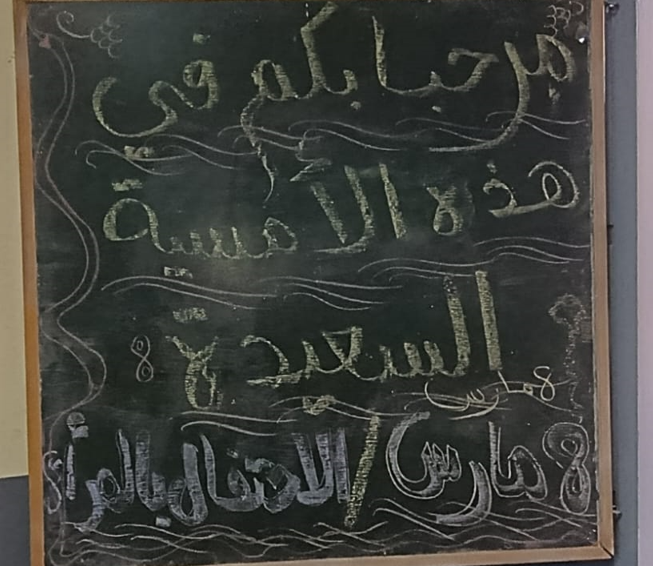 مرحبا بكم في
هذه الأمسية
السعيدة 8
8 مارس
8 مارس / الاحتفال بالمرأة